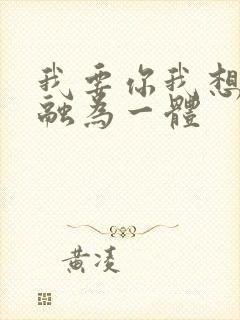 我要你我想
融為一體
黃凌